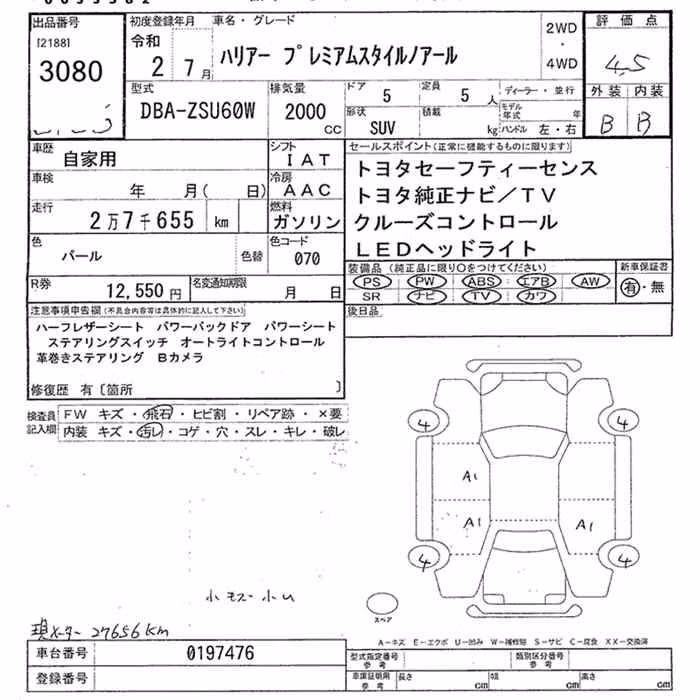 出品番号
[2188]
3080
初度登録年月
令和
2 7月
車名・グレード
ハリアー プレミアムスタイルノアール
2WD
・
4WD
評価点
4.5
外装 内装
B B
型式
DBA-ZSU60W
排気量
2000
CC
ドア
5
定員
5人
ディーラー・並行
形状
SUV
積載
kg
モデル年式
年
ハンドル 左・右
車歴
自家用
シフト
IAT
車検
年 月( 日)
冷房
AAC
走行
2万7千655 km
燃料
ガソリン
色
パール
色替
色コード
070
R券
12,550円
名変通知期限
月 日
セールスポイント(正常に機能するものに限ります)
トヨタセーフティーセンス
トヨタ純正ナビ/TV
クルーズコントロール
LEDヘッドライト
装備品(純正品に限り○をつけてください)
PS PW ABS エアB AW
SR ナビ TV カワ
新車保証書
有・無
後日品
注意事項申告欄(不具合内容等は具体的に記入して下さい)
ハーフレザーシート パワーバックドア パワーシート
ステアリングスイッチ オートライトコントロール
革巻きステアリング Bカメラ
修復歴 有〔箇所 〕
検査員
記入欄
FW キズ・飛石・ヒビ割・リペア跡・×要
内装 キズ・汚レ・コゲ・穴・スレ・キレ・破レ
4 4
A1
A1 A1
4 4
スペア
現メーター 27656Km
A－キズ E－エクボ U－凹み W－補修跡 S－サビ C－腐食 XX－交換済
車台番号
0197476
登録番号
型式指定番号
参考
類別区分番号
参考
車庫証明用
参考
長さ cm
幅 cm
高さ cm